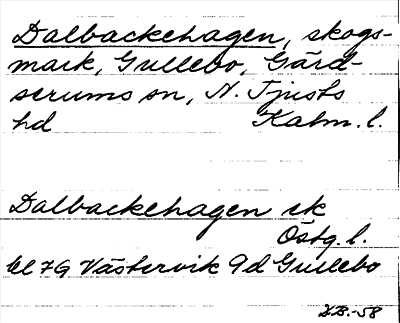 Dalbackehagen, skogs-
mark, Gullebo, Gärd-
serums sn, N. Tjusts
hd Kalm. l.
Dalbackehagen sk
Östg. l.
bl 7G Västervik 9d Gullebo
-58